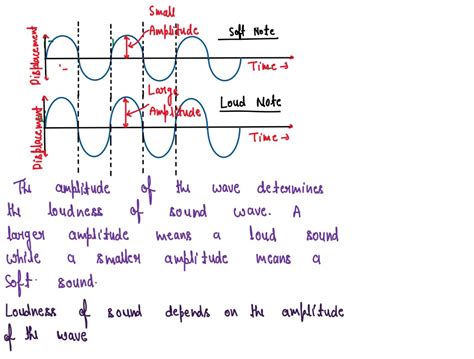 Small
Amplitude
Soft Note
Displacement
Time →
Large
Amplitude
Loud Note
Displacement
Time →
The amplitude of the wave determines
the loudness of sound wave. A
larger amplitude means a loud sound
while a smaller amplitude means a
Soft sound.
Loudness of sound depends on the amplitude
of the wave